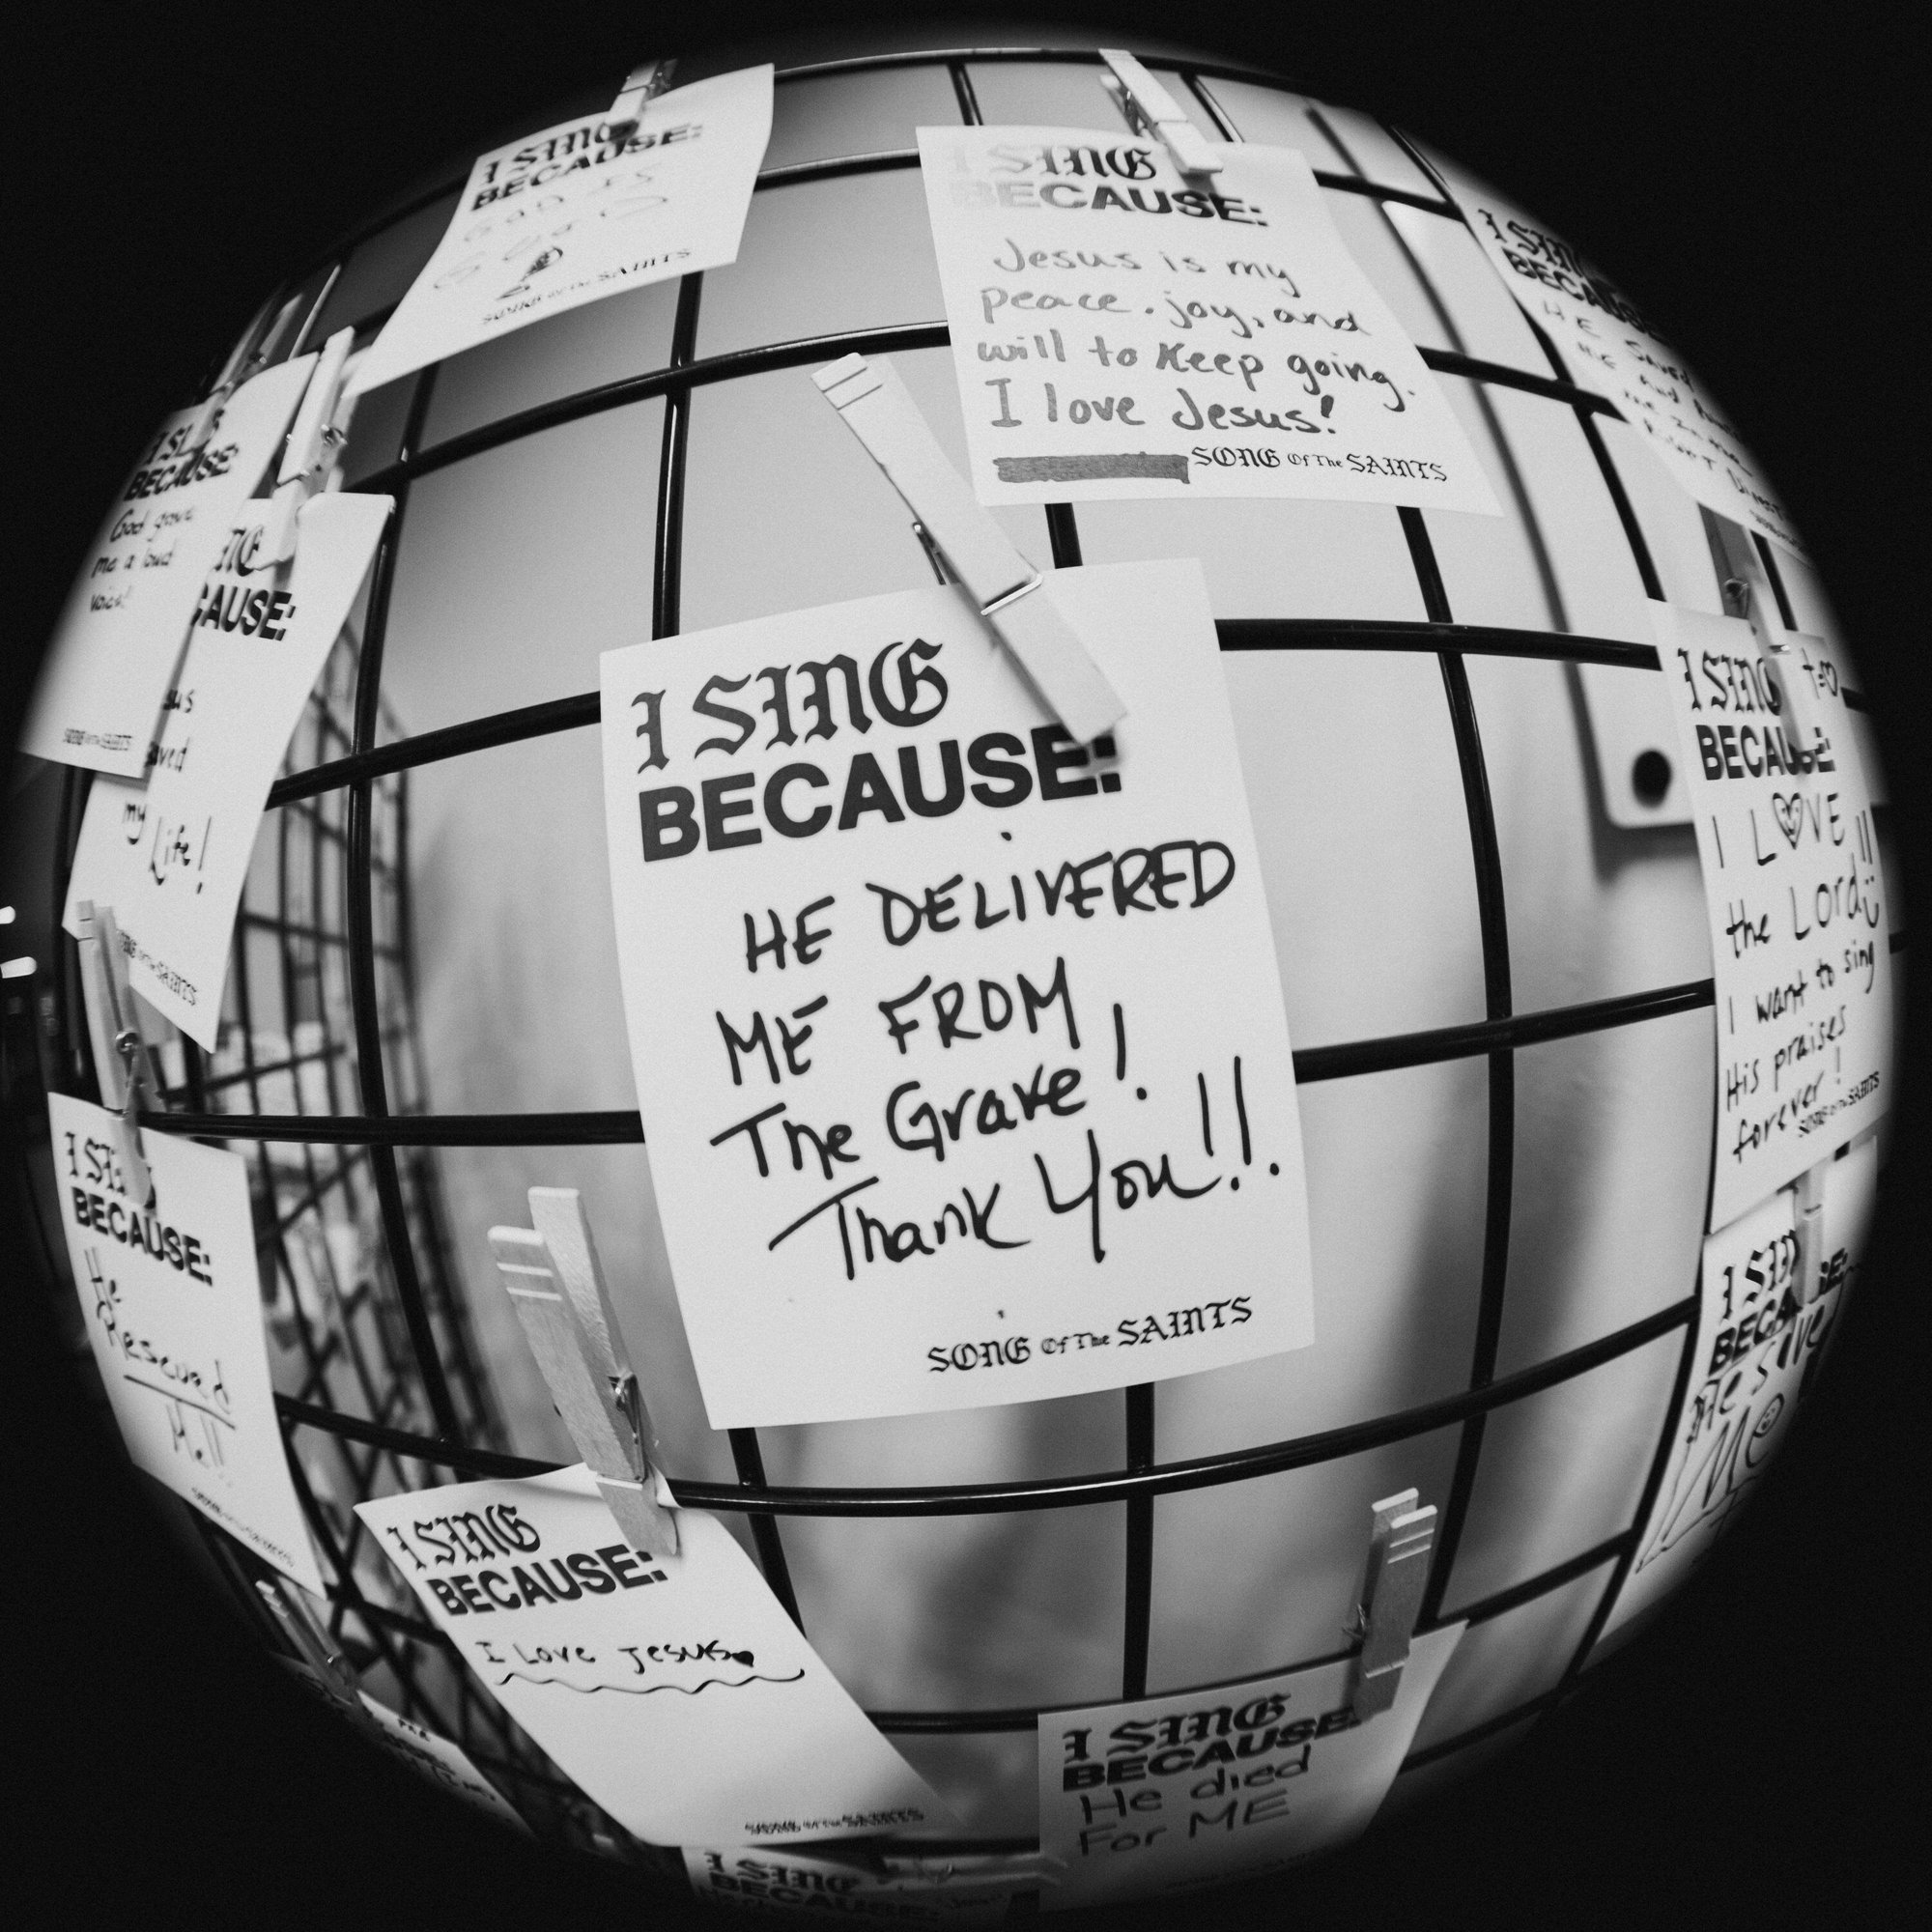 I SING
BECAUSE:
GOD IS
GOOD
SONG Of The SAINTS
I SING
BECAUSE:
Jesus is my
peace, joy, and
will to keep going.
I love Jesus!
SONG Of The SAINTS
I SING
BECAUSE
HE Saved
ME and
I SI
BECAUSE
God gave
me a loud
voice!
SONG Of The SAINTS
CAUSE:
my
Life!
SONG Of The SAINTS
I SING
BECAUSE:
HE DELIVERED
ME FROM
The Grave!
Thank You!!
SONG Of The SAINTS
I SING
BECAUSE:
I LOVE
the Lord!!
I want to sing
His praises
forever!
SONG Of The SAINTS
I SING
BECAUSE:
He
Rescued
Me!!
I SIN
BECA
He Save
Me
I SING
BECAUSE:
I Love Jesus
SONG Of The SAINTS
I SING
BECAUSE:
He died
For ME
I SING
BECAUSE: